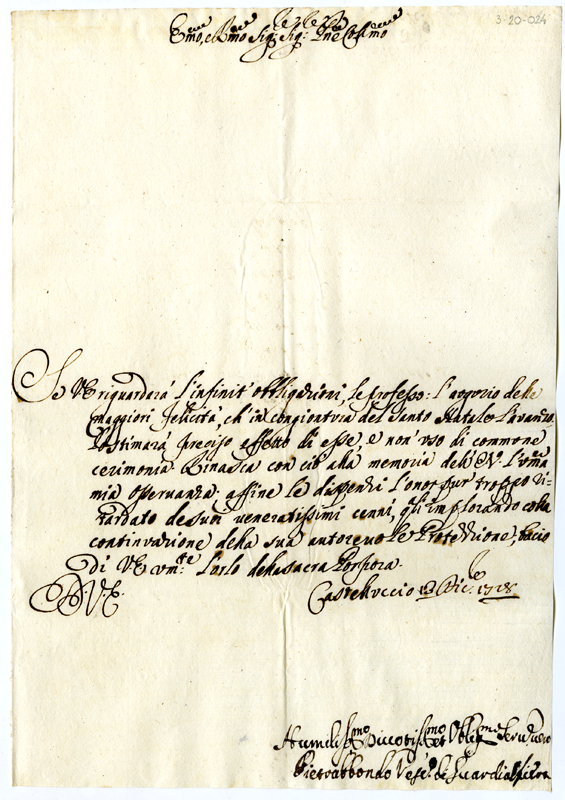 3-20-024
Emo, e Rmo Sig: Sig: Pne Colmo
Se VE riguardará l'infinit' obligazioni, le professo: l'augurio delle
maggiori felicitá, ch' in congiontura del Santo Natale l'avanzo,
l'estimará preciso effetto di esse, e non' uso di commone
cerimonia. Rinasca con ciò alla memoria dell' E.V. l'
mia osservanza, affine le dispensi l'onor pur troppo ri=
tardato de suoi veneratissimi cenni, q.li implorando colla
continuazione della sua autorevole Protezzione, bacio
di VE um.te l'orlo della sacra Porpora.
D. V. E. Castelluccio 13 Dic.e 1728
Humiliss.mo Divotiss.mo et Oblig.mo Serv.
Pietrabbondo Vesc.o di Guardialfiera